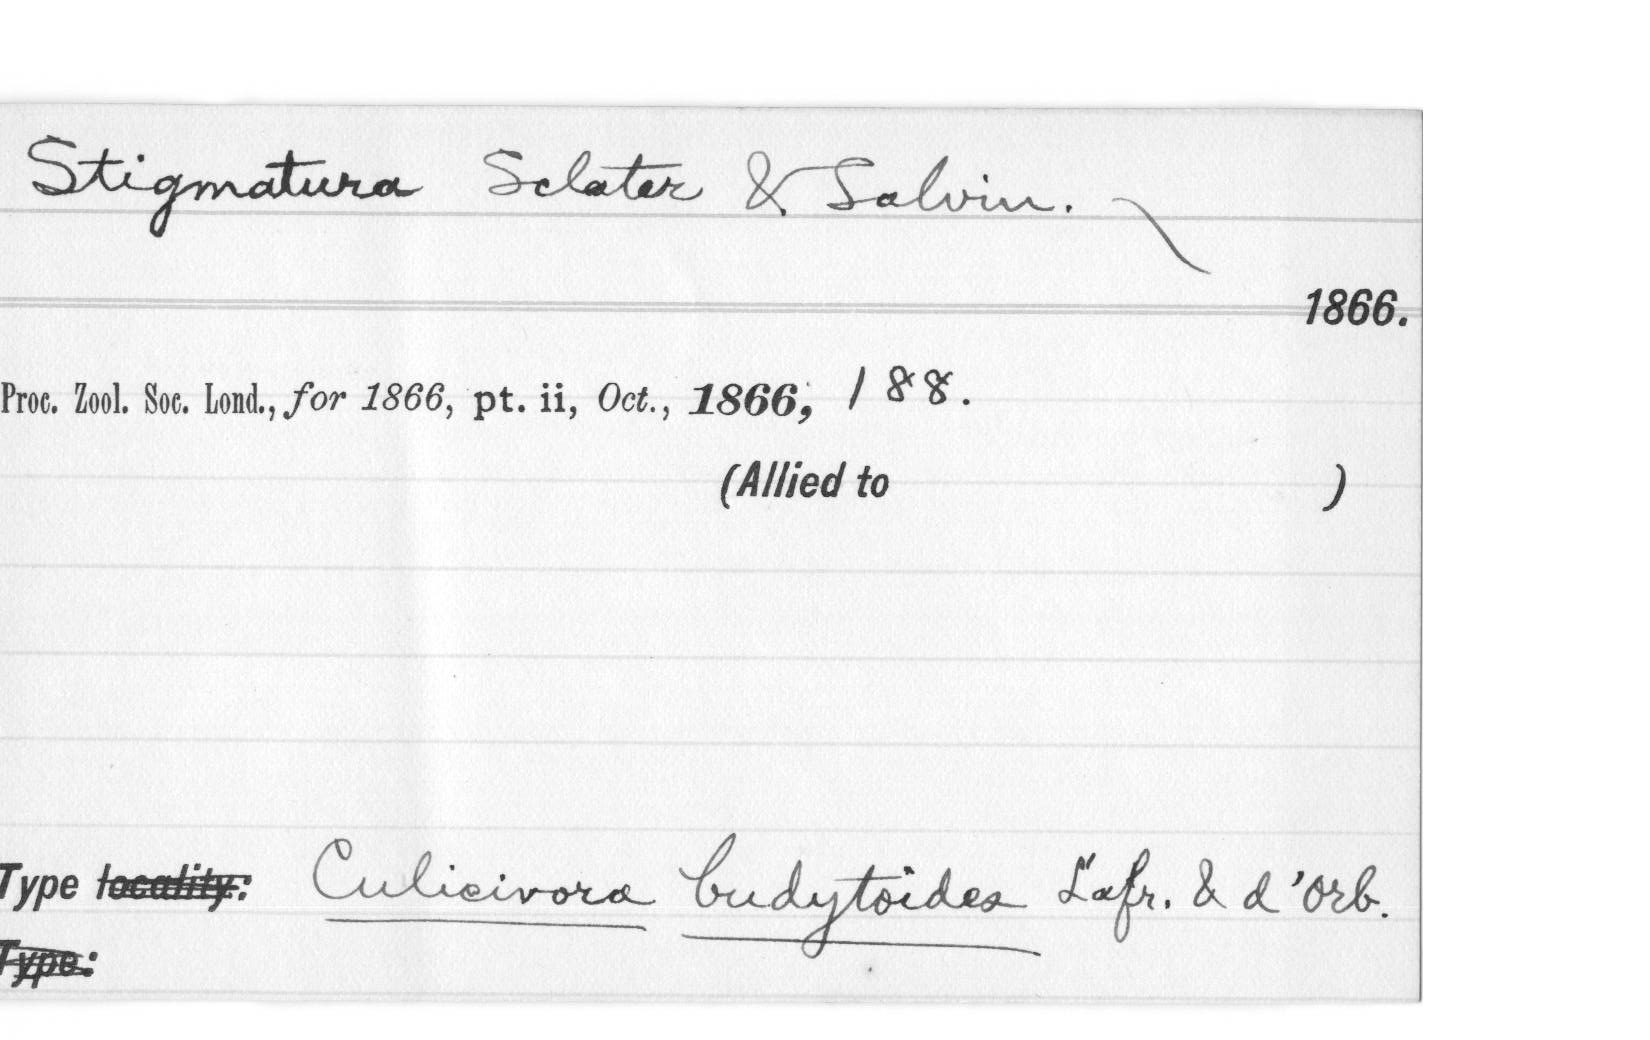 Stigmatura Sclater & Salvin.
1866.
Proc. Zool. Soc. Lond., for 1866, pt. ii, Oct., 1866, 188.
(Allied to )
Type locality: Culicivora budytoides Lafr. & d'Orb.
Type: